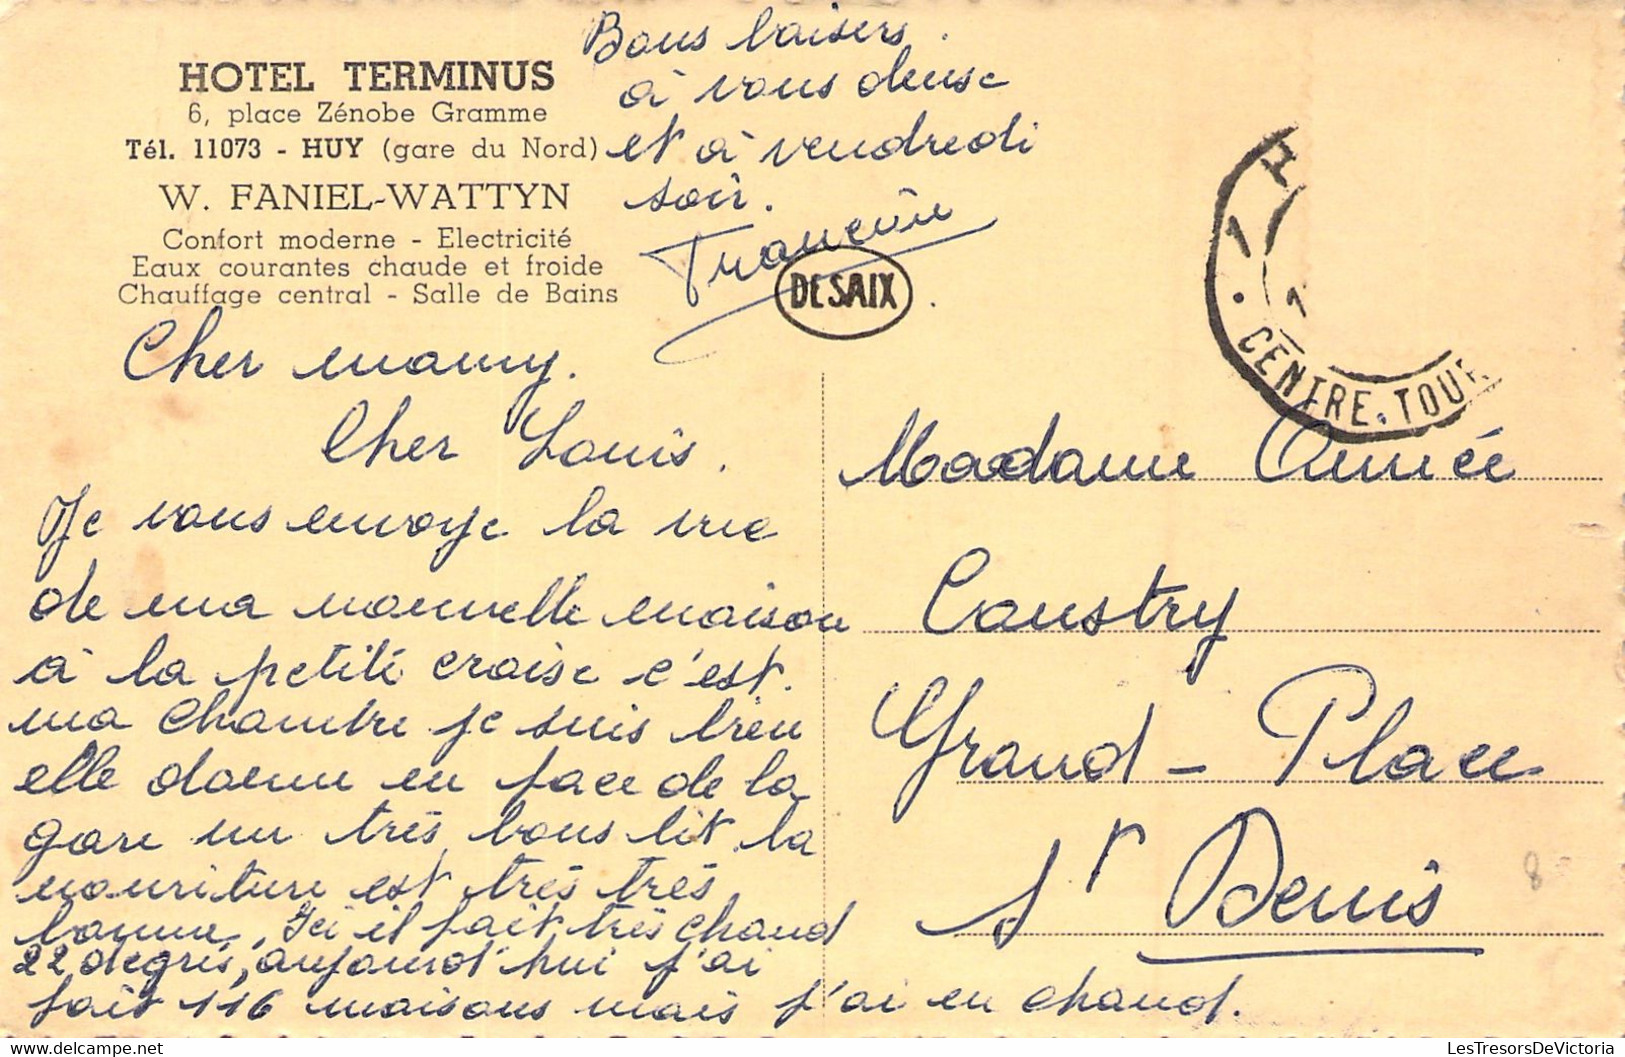 HOTEL TERMINUS
6, place Zénobe Gramme
Tél. 11073 - HUY (gare du Nord)
W. FANIEL-WATTYN
Confort moderne - Electricité
Eaux courantes chaude et froide
Chauffage central - Salle de Bains
Bons baisers.
à vous deuse
et à vendredi
soir.
DESAIX
Cher mamy.
Cher Louis.
Je vous envoye la vue
de ma nouvelle maison
à la petite croise c'est
ma chambre je suis bien
elle donne en face de la
gare un très bons lit la
nouriture est très très
bonne, Ici il fait très chaud
22 degrés, aujourd'hui j'ai
fait 116 maisons mais j'ai eu chaud.
CENTRE. TOUR
Madame
Caustry
Grand-Place
St Denis
LesTresorsDeVictoria